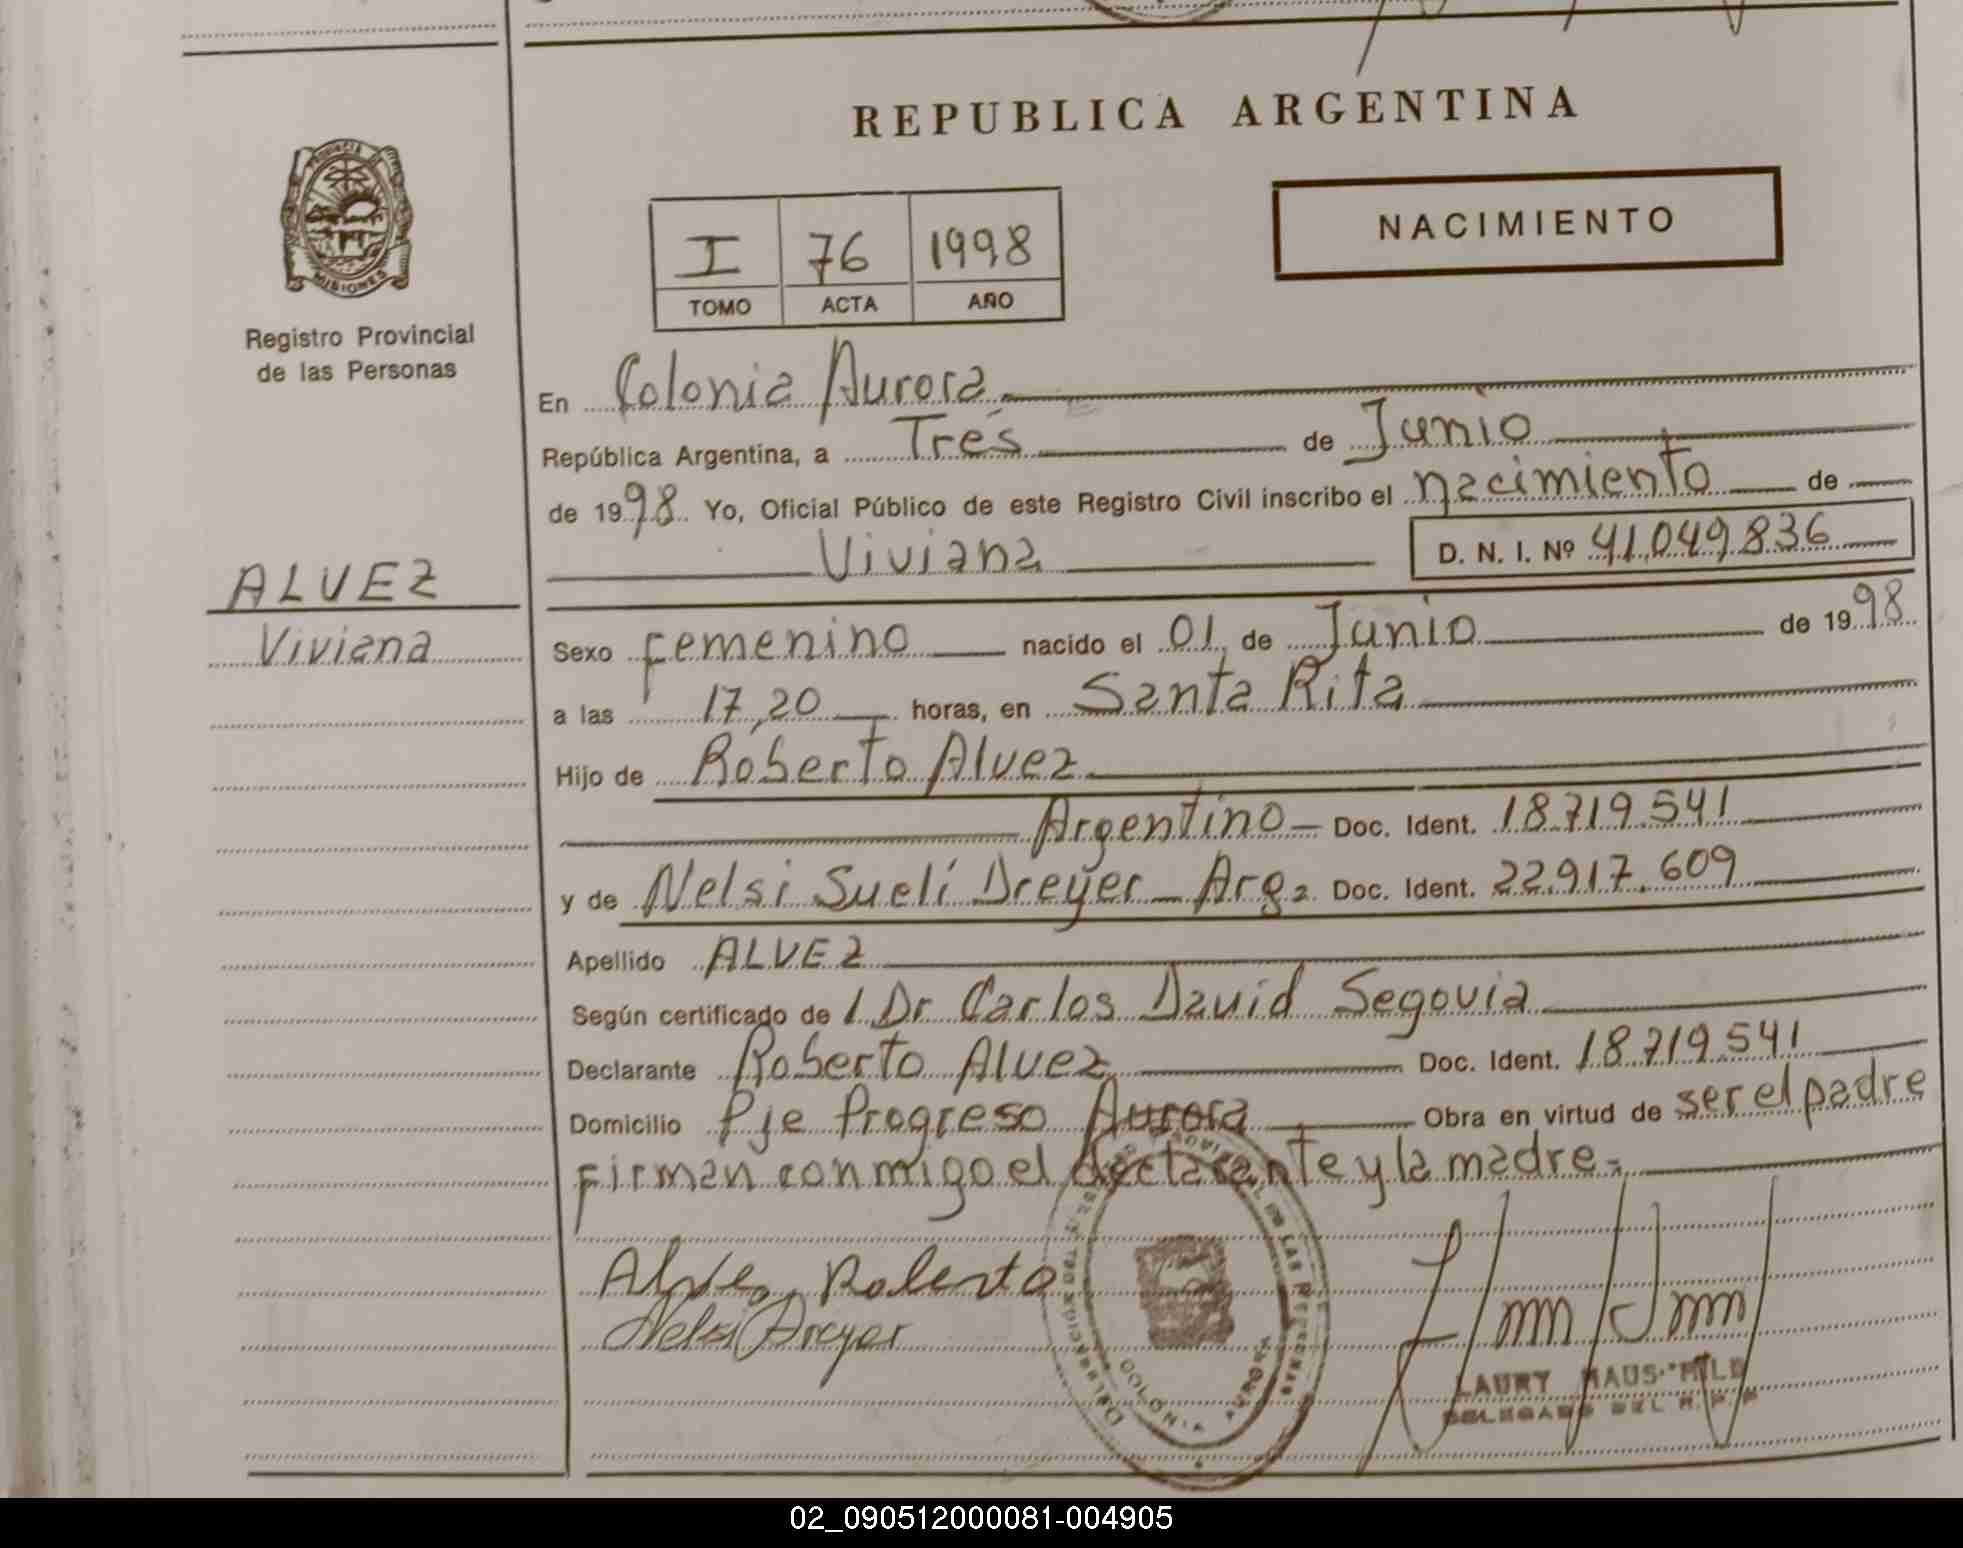 REPUBLICA ARGENTINA
PROVINCIA
MISIONES
Registro Provincial
de las Personas
NACIMIENTO
I 76 1998
TOMO ACTA AÑO
En Colonia Aurora
República Argentina, a Tres de Junio
de 1998 Yo, Oficial Público de este Registro Civil inscribo el nacimiento de
Viviana D. N. I. Nº 41.049.836
ALVEZ
Viviana
Sexo femenino nacido el 01 de Junio de 1998
a las 17,20 horas, en Santa Rita
Hijo de Roberto Alvez
Argentino Doc. Ident. 18.719.541
y de Nelsi Suelí Dreyer - Arg. Doc. Ident. 22.917.609
Apellido ALVEZ
Según certificado de Dr Carlos David Segovia
Declarante Roberto Alvez Doc. Ident. 18.719.541
Domicilio Pje Progreso Aurora Obra en virtud de ser el padre
firman conmigo el declarante y la madre.
Alvez Roberto
Nelsi Dreyer
COLONIA AURORA
LAURY
DELEGADO DEL R. P. P
02_090512000081-004905